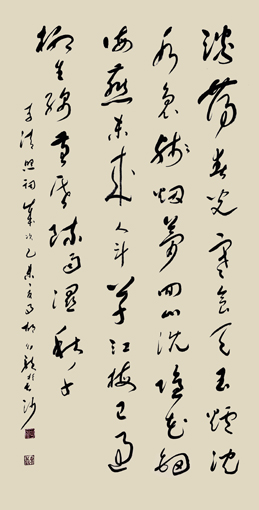 淡荡春光寒食天玉炉沈
水袅残烟梦回山枕隐花钿
海燕未来人斗草江梅已过
柳生绵黄昏疏雨湿秋千
李清照词岁次乙未夏月 于长沙